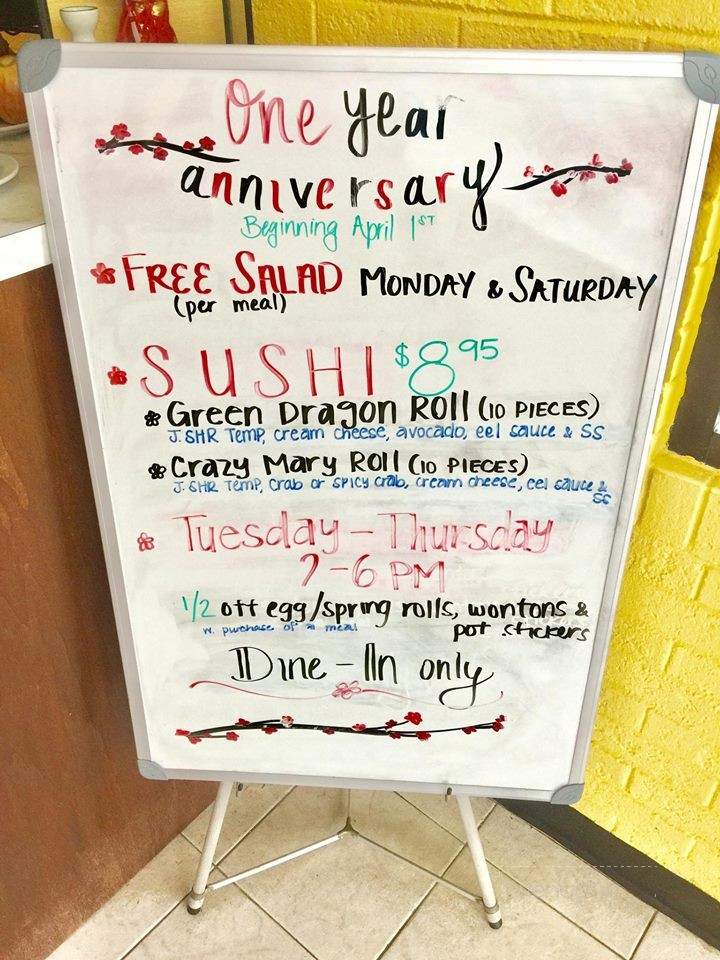 One year
anniversary
Beginning April 1ST
FREE SALAD MONDAY & SATURDAY
(per meal)
SUSHI $8 95
Green Dragon Roll (10 PIECES)
J. SHR TEMP, cream cheese, avocado, eel sauce & SS
Crazy Mary Roll (10 PIECES)
J. SHR TEMP, crab or spicy crab, cream cheese, eel sauce &
SS
Tuesday - Thursday
2-6 PM
1/2 off egg/spring rolls, wontons &
w. purchase of a meal pot stickers
Dine-In only